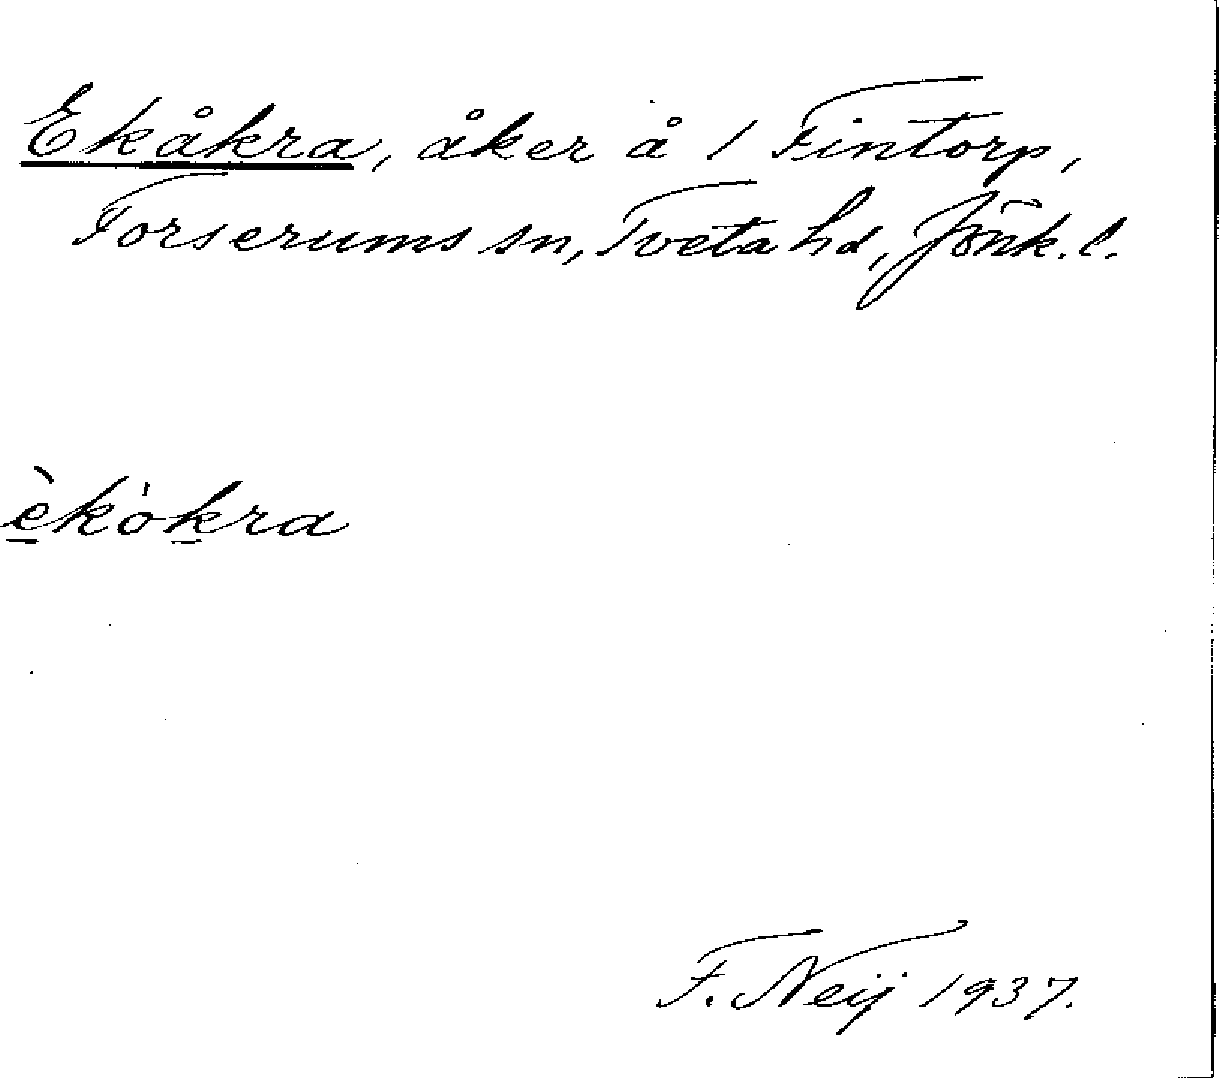 Ekåkra, åker å 1 Fintorp,
Forserums sn, Tveta hd, Jönk. l.
èkòkra
F. Neij 1937.